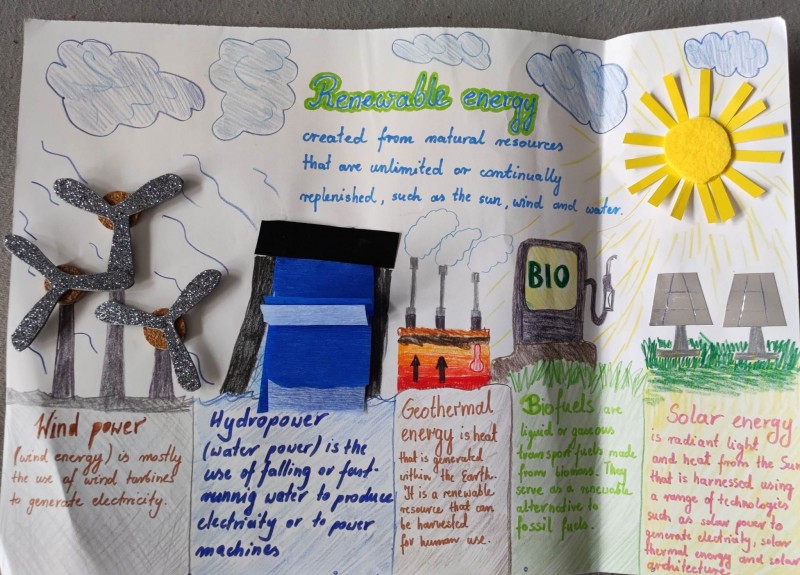 Renewable energy
created from natural resources
that are unlimited or continually
replenished, such as the sun, wind and water.
BIO
Wind power
(wind energy) is mostly
the use of wind turbines
to generate electricity.
Hydropower
(water power) is the
use of falling or fast-
running water to produce
electricity or to power
machines
Geothermal
energy is heat
that is generated
within the Earth.
It is a renewable
resource that can
be harvested
for human use.
Biofuels are
liquid or gaseous
transport fuels made
from biomass. They
serve as a renewable
alternative to
fossil fuels.
Solar energy
is radiant light
and heat from the Sun
that is harnessed using
a range of technologies
such as solar power to
generate electricity, solar
thermal energy and solar
architecture.